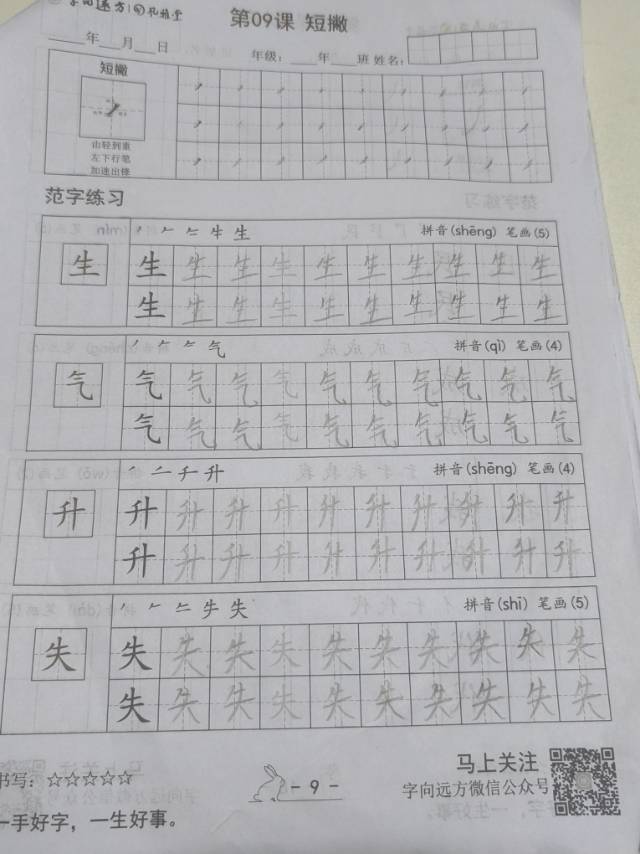 字向远方
第09课 短撇
年 月 日
年级: 年 班 姓名:
短撇
由轻到重
左下行笔
加速出锋
范字练习
生 拼音(shēng) 笔画(5)
生 生 生 生 生 生 生 生 生 生 生
生 生 生 生 生 生 生 生 生 生
气 拼音(qì) 笔画(4)
气 气 气 气 气 气 气 气 气 气 气
气 气 气 气 气 气 气 气 气 气
千 升 拼音(shēng) 笔画(4)
升 升 升 升 升 升 升 升 升 升 升
升 升 升 升 升 升 升 升 升 升
失 拼音(shī) 笔画(5)
失 失 失 失 失 失 失 失 失 失 失
失 失 失 失 失 失 失 失 失 失
书写: ☆☆☆☆☆
- 9 -
马上关注
字向远方微信公众号
一手好字，一生好事。